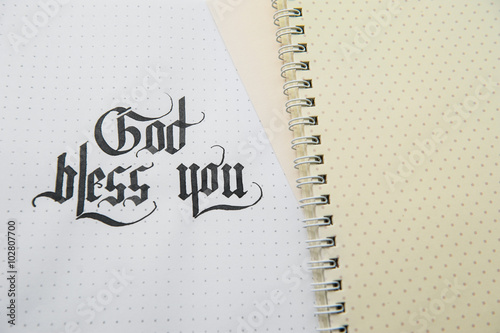 God
bless you
102807700